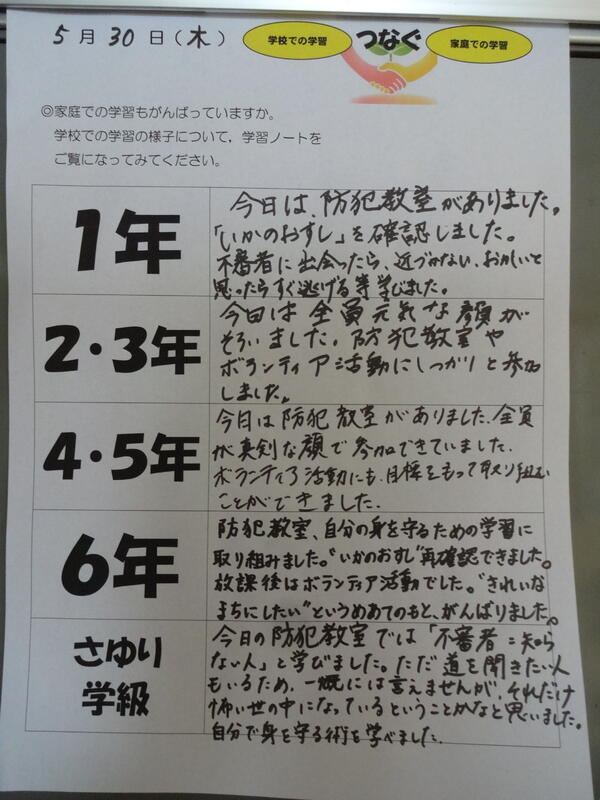 5月30日(木)
学校での学習
つなぐ
家庭での学習
◎家庭での学習もがんばっていますか。
学校での学習の様子について，学習ノートを
ご覧になってみてください。
1年
今日は、防犯教室がありました。
「いかのおすし」を確認しました。
不審者に出会ったら、近づかない、おかしいと
思ったらすぐ逃げる等学びました。
2・3年
今日は全員元気な顔が
そろいました。防犯教室や
ボランティア活動にしっかりと参加
しました。
4・5年
今日は防犯教室がありました。全員
が真剣な顔で参加できていました。
ボランティア活動にも、目標をもって取り組む
ことができました。
6年
防犯教室、自分の身を守るための学習に
取り組みました。“いかのおすし”再確認できました。
放課後はボランティア活動でした。“きれいな
まちにしたい”というめあてのもと、がんばりました。
さゆり
学級
今日の防犯教室では「不審者=知ら
ない人」と学びました。ただ道を聞きたい人
もいるため、一概には言えませんが、それだけ
怖い世の中になっているということかなと思いました。
自分で身を守る術を学べました。